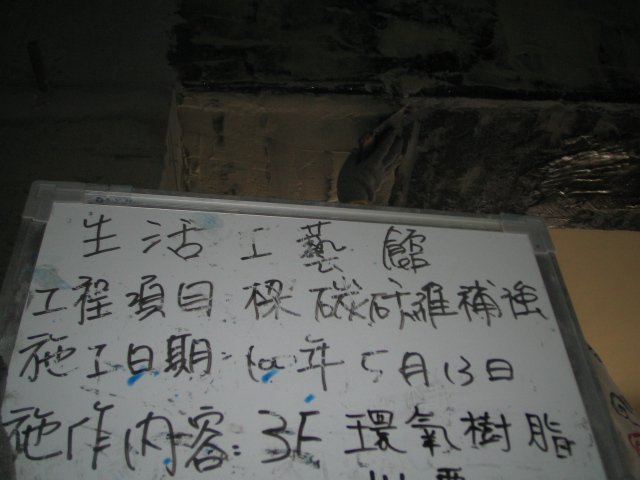 生活工藝館
工程項目 樑碳纖維補強
施工日期:100年5月13日
施作內容:3F 環氧樹脂